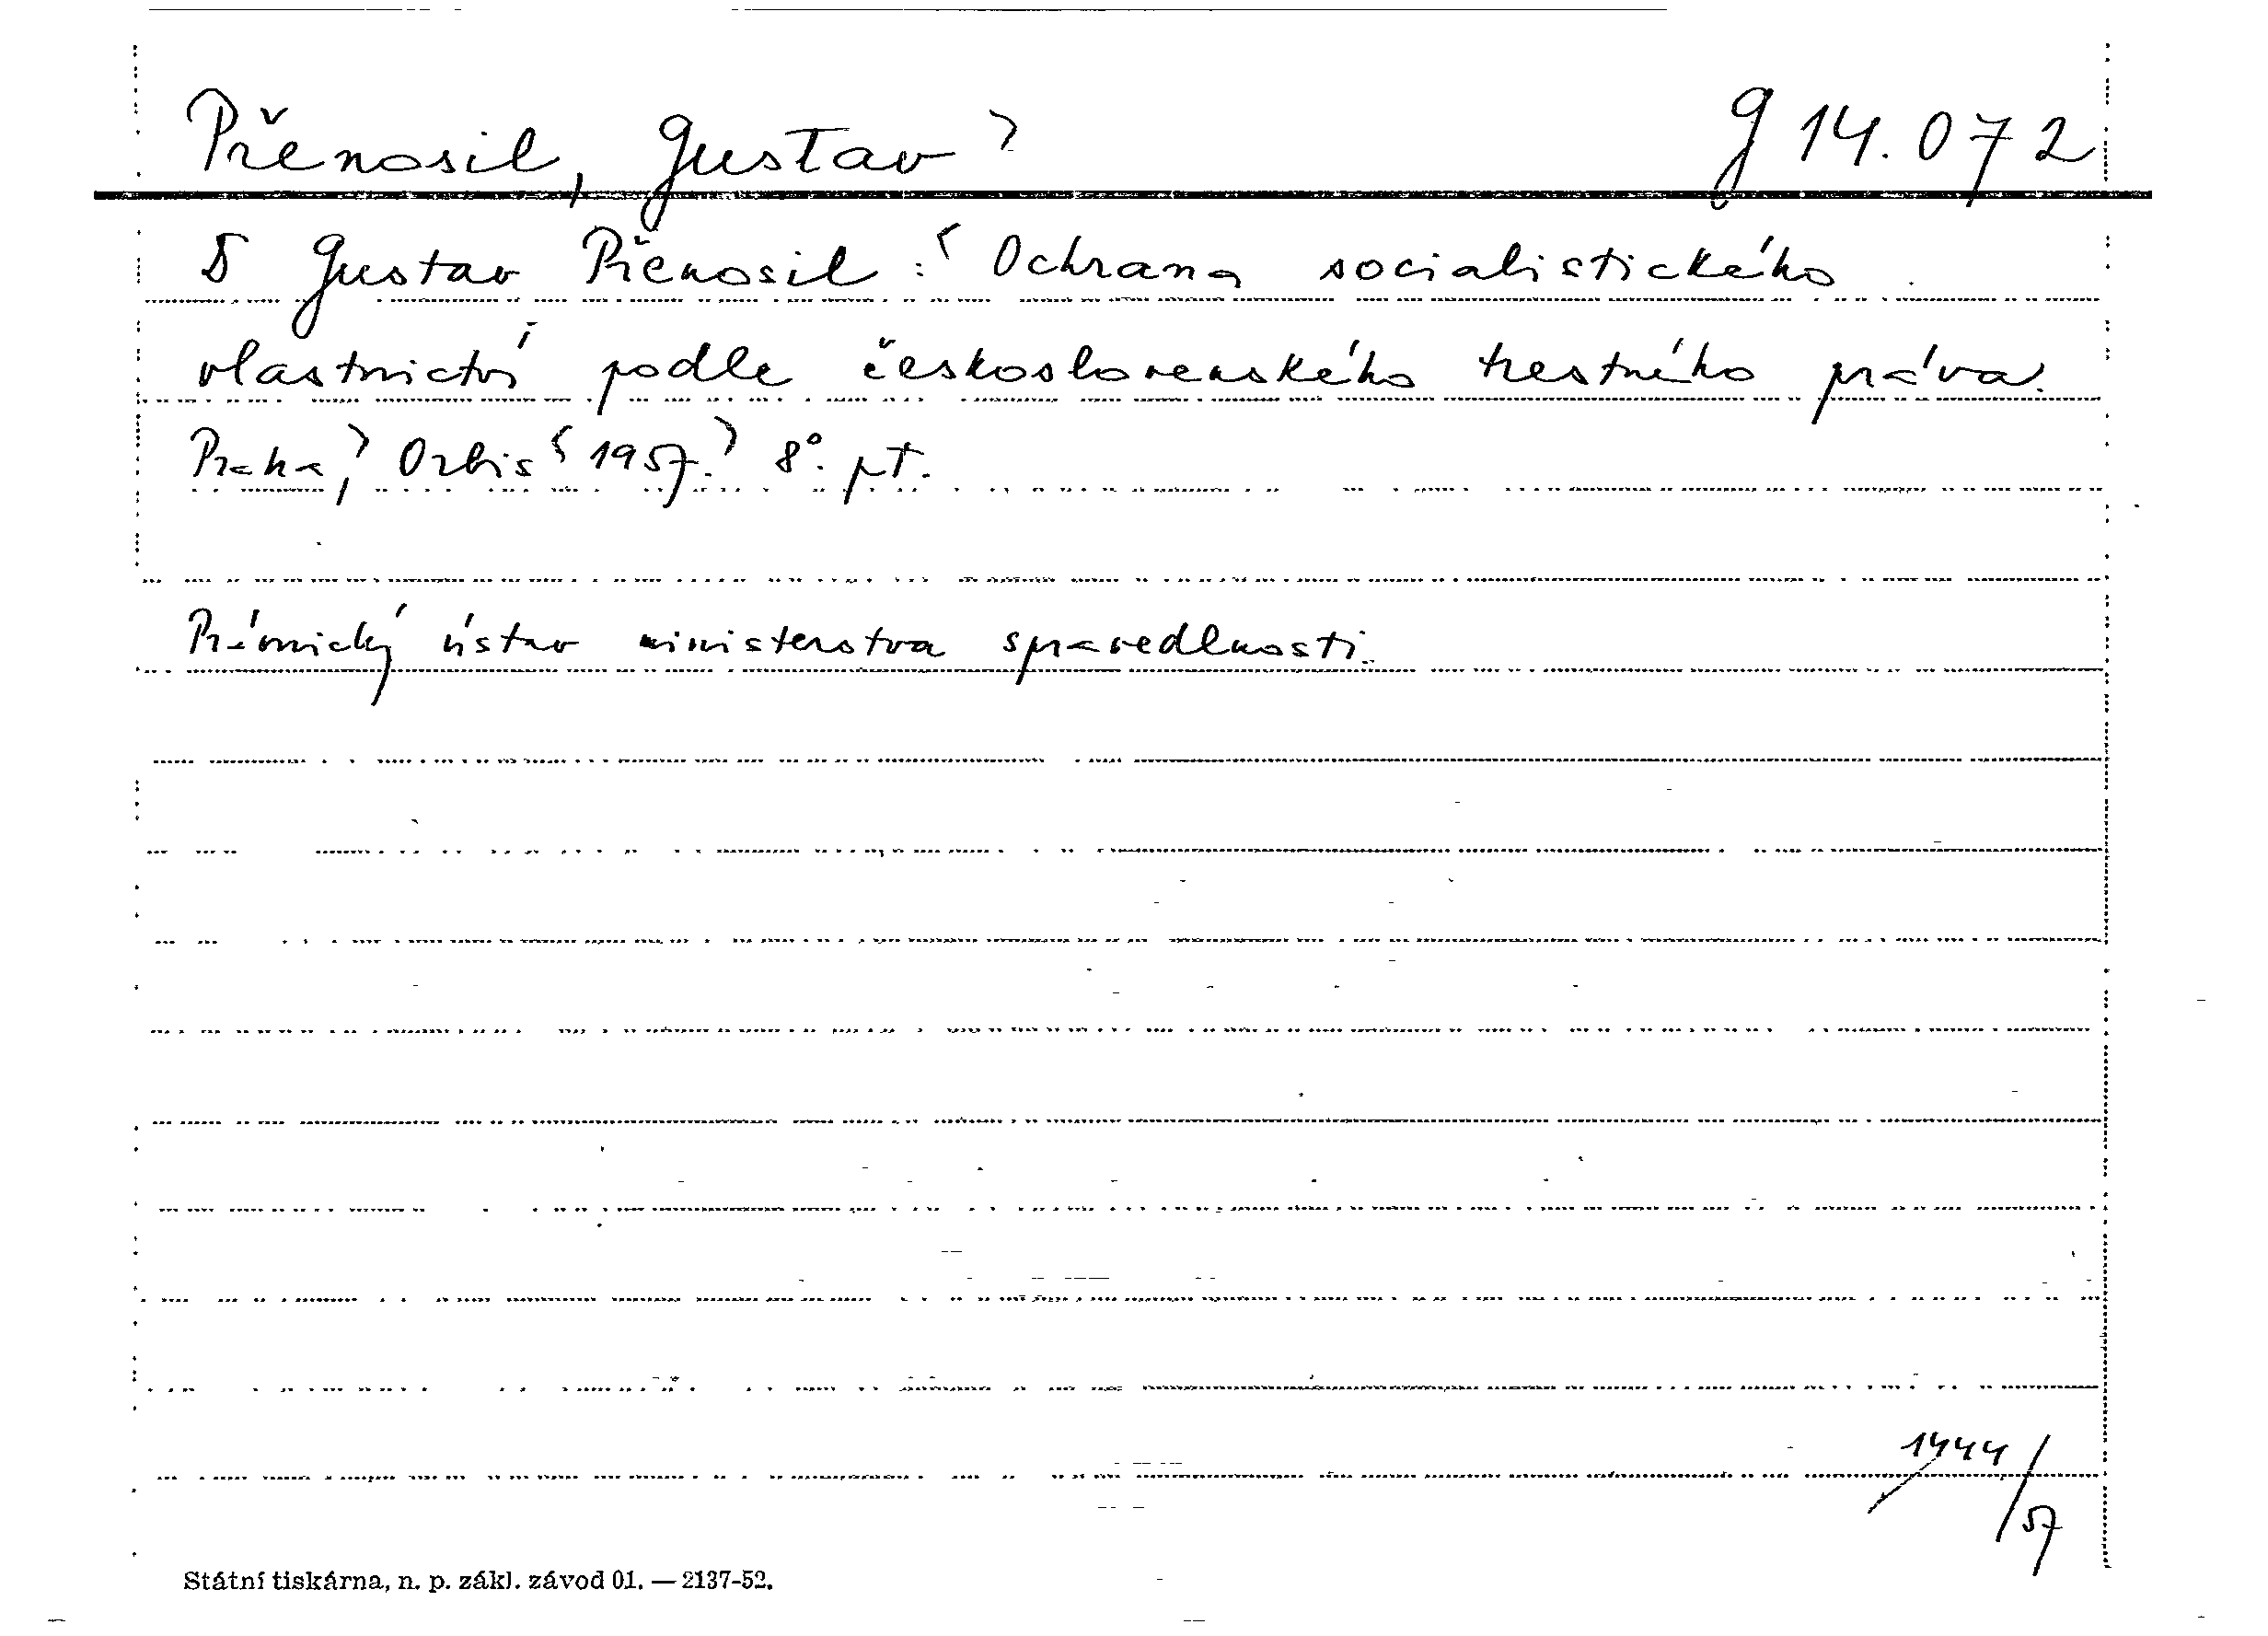 Přenosil, Gustav> g 14.072
Gustav Přenosil :< Ochrana socialistického
vlastnictví podle československého trestného práva.
Praha,> Orbis< 1957.> 8°. pt.
Právnický ústav ministerstva spravedlnosti.
1444/57
Státní tiskárna, n. p. zákl. závod 01. — 2137-52.